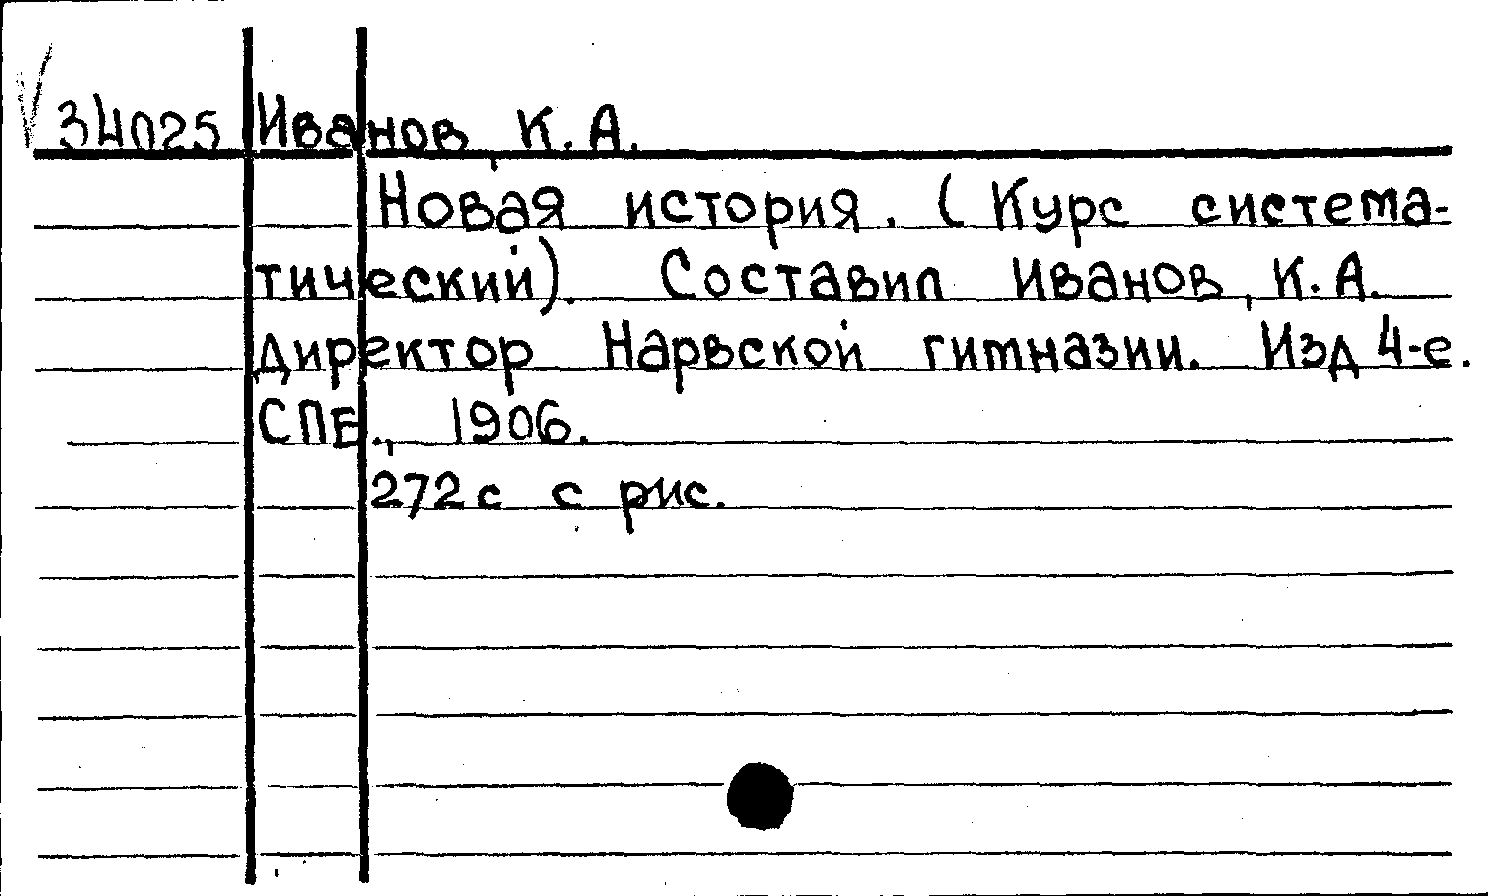 34025 Иванов, К. А.
Новая история. (Курс система-
тический). Составил Иванов, К. А.
директор Нарвской гимназии. Изд 4-е.
СПБ., 1906.
272 с с рис.